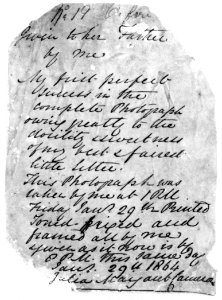 Given to her Father
by me.
My first perfect
success in the
complete Photograph
owing greatly to the
docility & sweetness
of my best & fairest
little sitter.
This Photograph was
taken by me at 1 P.M.
Friday Jan. 29th Printed
Toned fixed and
framed all by me
& given as it now is by
8 P.M. this same day
Jan. 29th 1864.
Julia Margaret Cameron